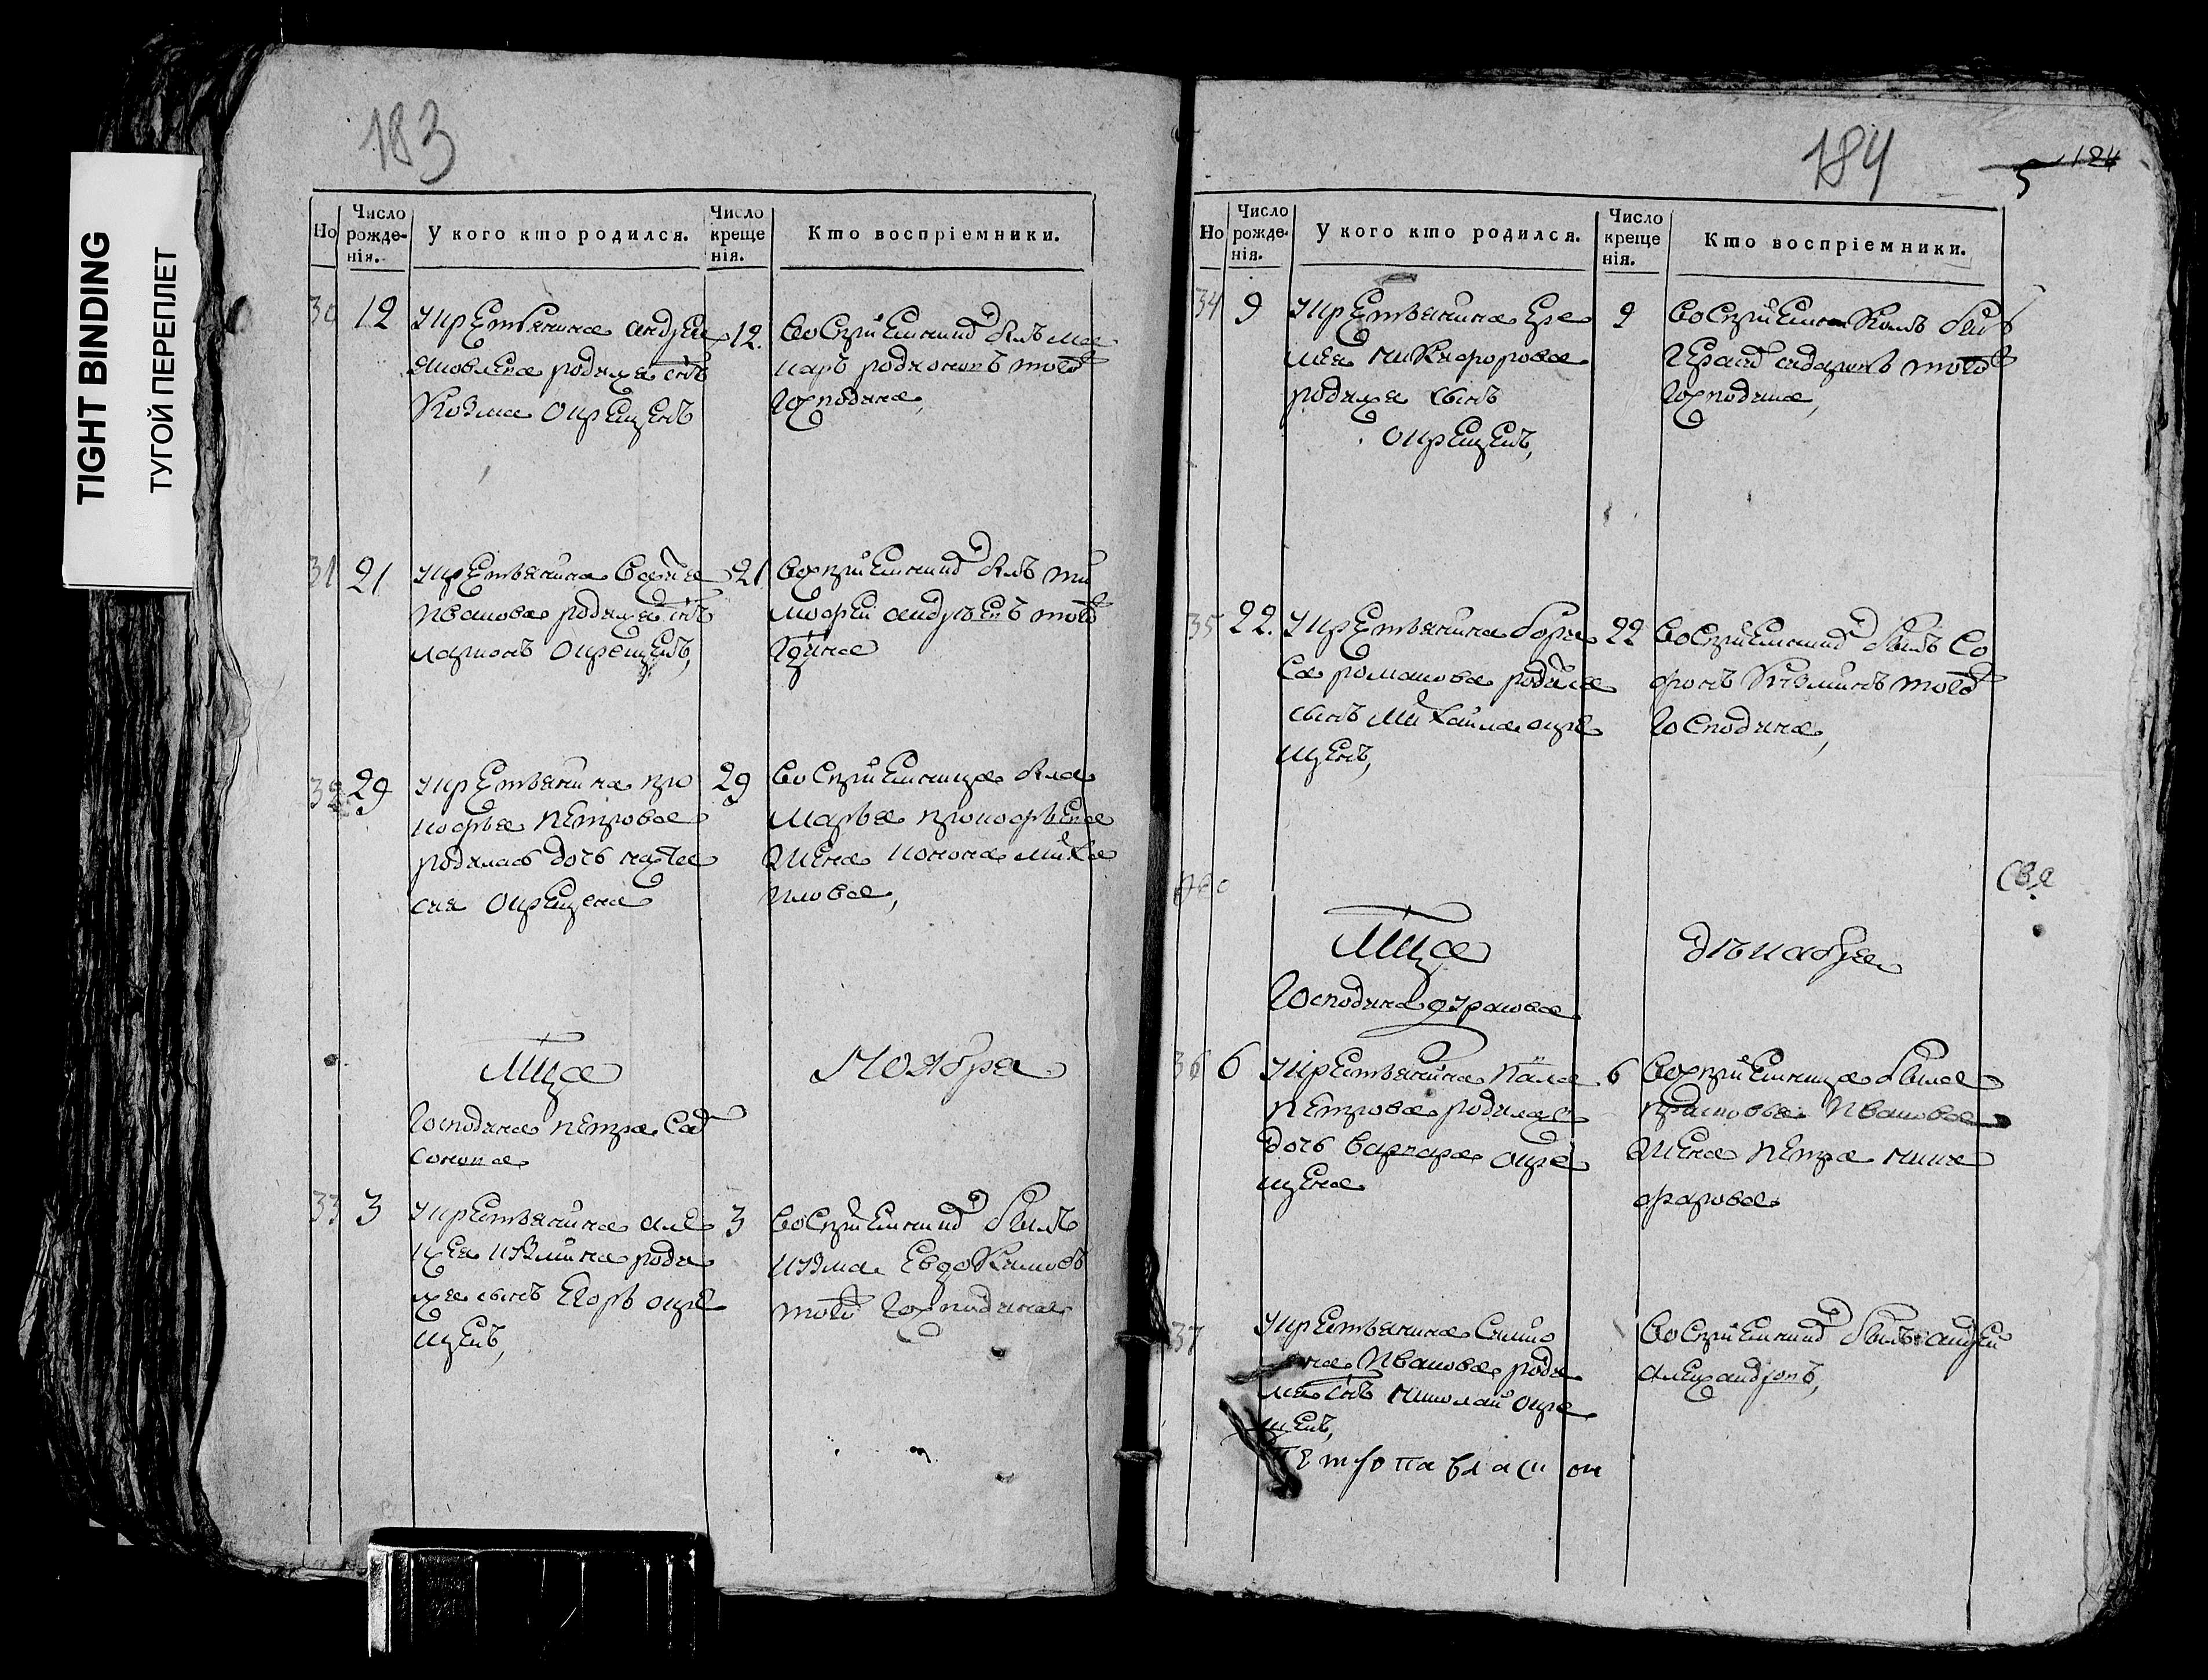 TIGHT BINDING
ТУГОЙ ПЕРЕПЛЕТ
183
Но
Число рожденія.
У кого кто родился.
Число крещенія.
Кто воспріемники.
30 12
укрестьянина андрея
яковлева родился снъ
Козма окрещенъ
12.
воспріемникъ былъ ма
каръ родионовъ того
господина,
31 21
укрестьянина
иванова родился снъ
ларионъ окрещенъ,
21
воспріемникъ былъ ти
мофеи андреевъ того
гдина
32 29
укрестьянина про
кофья петрова
родилась дочь настa
сия окрещена
29
воспріемница была
марья прокофьева
жена конона миха
илова,
Мца Ноября
господина петра сад
сонова
33 3
укрестьянина але
ксея кузмина роди
лся сынъ Егоръ окре
щенъ,
3
воспріемникъ былъ
кузма Евдокимовъ
того господина
184
5 184
Но
Число рожденія.
У кого кто родился.
Число крещенія.
Кто воспріемники.
34 9
укрестьянина ере
мея никифорова
родился сынъ
окрещенъ,
9
воспріемникомъ былъ
герасимъ сидоровъ того
господина,
35 22.
укрестьянина бори
са романова родился
сынъ михайла окре
щенъ,
22
воспріемникъ былъ со
фронъ кузминъ того
господина,
Мца декабря
господина
36 6
укрестьянина павла
петрова родилась
дочь варвара окре
щена
6
воспріемница была
прасковья иванова
жена петра ники
фарова
37
укрестьянина симио
на иванова роди
лся снъ николай окре
щенъ,
воспріемникъ былъ андрей
александровъ,